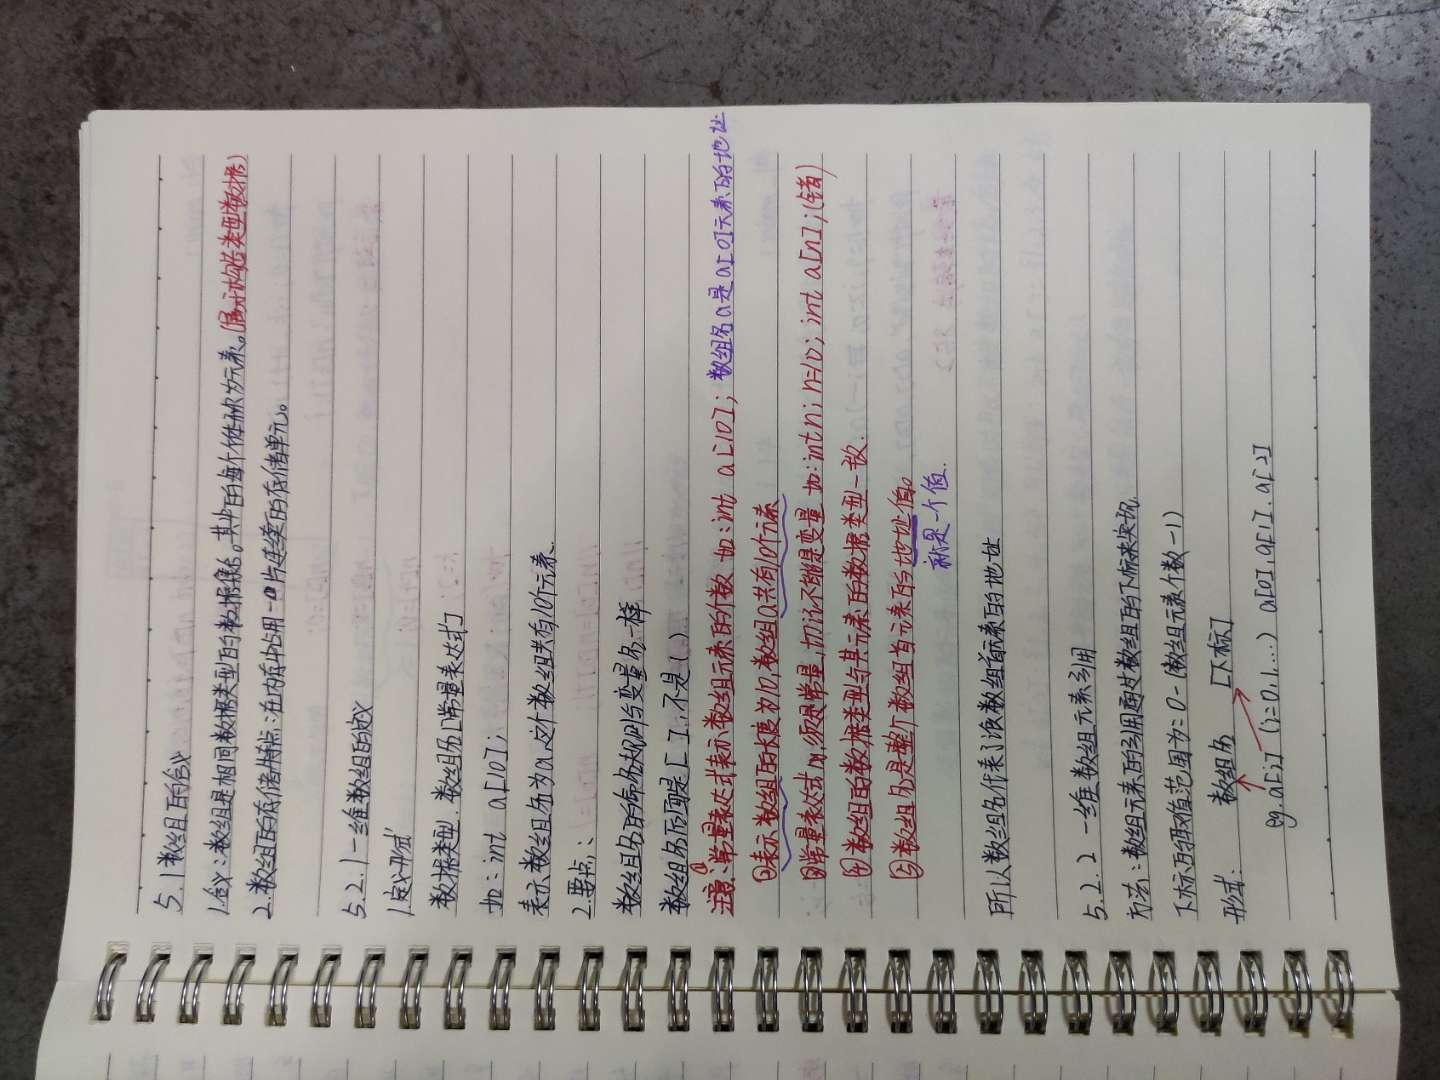 5.1 数组的含义
1.含义:数组是相同数据类型的数据集。其中的每个体称为元素。(属于构造类型数据)
2.数组的存储特点:在内存中占用一片连续的存储单元。
5.2.1 一维数组的定义
1.定义形式
数据类型 数组名[常量表达式]
如:int a[10];
表示数组名为a,这个数组共有10个元素
2.要点:
数组名的命名规则与变量名一样
数组名后面是[ ],不是( )
注意:①常量表达式表示数组元素的个数 如:int a[10]; 数组名a是a[0]元素的地址
②表示数组的长度为10,数组a共有10个元素
③常量表达式必须是常量,切记不能是变量 如:int n;n=10;int a[n];(错)
④数组的数据类型与其元素的数据类型一致.
⑤数组名是整个数组首元素的地址值。
就是一个值.
所以数组名代表了该数组首元素的地址
5.2.2 一维数组元素引用
方法:数组元素的引用通过数组的下标来实现
下标的取值范围为:0-(数组元素个数-1)
形式: 数组名 [下标]
eg.a[i] (i=0,1,...) a[0],a[1],a[2]